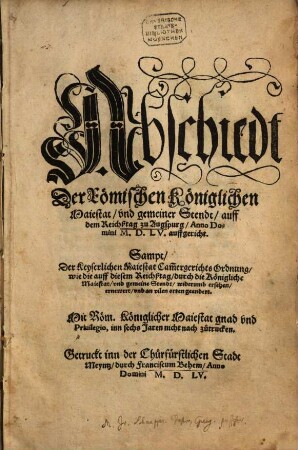 BAYERISCHE
STAATS-
BIBLIOTHEK
MUENCHEN
Abschiedt
Der Römischen Königlichen
Maiestat / vnd gemeiner Stendt / auff
dem Reichßtag zu Augspurg / Anno Do-
mini M. D. LV. auffgericht.
Sampt /
Der Keyserlichen Maiestat Cam̃ergerichts Ordnung /
wie die auff diesem Reichßtag / durch die Königliche
Maiestat / vnd gemeine Stende / widerumb ersehen /
ernewert / vnd an vilen orten geendert.
Mit Röm. Königlicher Maiestat gnad vnd
Priuilegio, inn sechs Jaren nicht nach zůtrucken.
Getruckt inn der Chůrfürstlichen Stadt
Meyntz / durch Franciscum Behem / Anno
Domini M. D. LV.